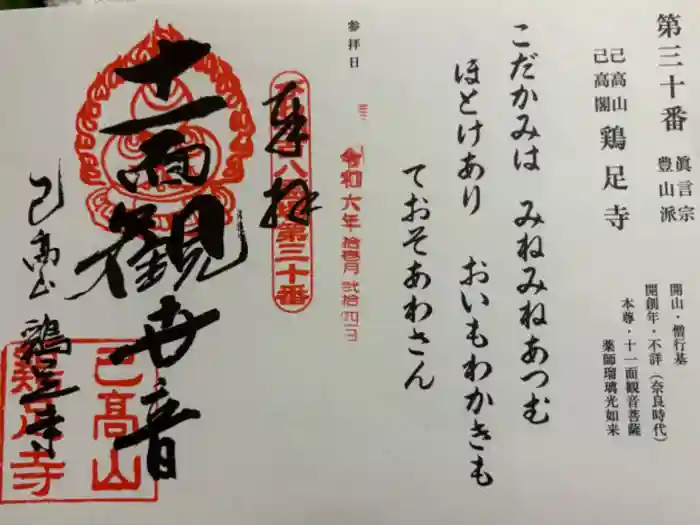 第三十番
眞言宗
豊山派
己高山
己高閣
鶏足寺
開山・僧行基
開創年・不詳（奈良時代）
本尊・十一面観音菩薩
薬師瑠璃光如来
こだかみは　みねみねあつむ
ほとけあり　おいもわかきも
ておそあわさん
参拝日
令和六年拾壱月弐拾四日
奉拝
第三十番
十一面觀世音
己高山
鶏足寺
己高山
鶏足寺